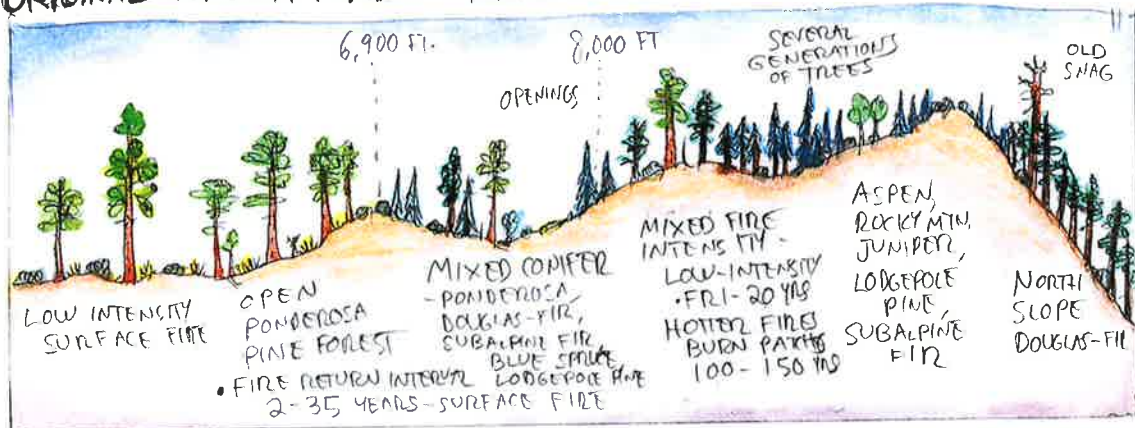 ORIGINAL
6,900 FT.
8,000 FT
OPENINGS
SEVERAL
GENERATIONS
OF TREES
OLD
SNAG
LOW INTENSITY
SURFACE FIRE
OPEN
PONDEROSA
PINE FOREST
• FIRE RETURN INTERVAL
2-35 YEARS-SURFACE FIRE
MIXED CONIFER
-PONDEROSA,
DOUGLAS-FIR,
SUBALPINE FIR,
BLUE SPRUCE,
LODGEPOLE PINE
MIXED FIRE
INTENSITY -
LOW-INTENSITY
• FRI-20 YRS
HOTTER FIRES
BURN PATCHS
100-150 YRS
ASPEN,
ROCKY MTN.
JUNIPER,
LODGEPOLE
PINE,
SUBALPINE
FIR
NORTH
SLOPE
DOUGLAS-FIR